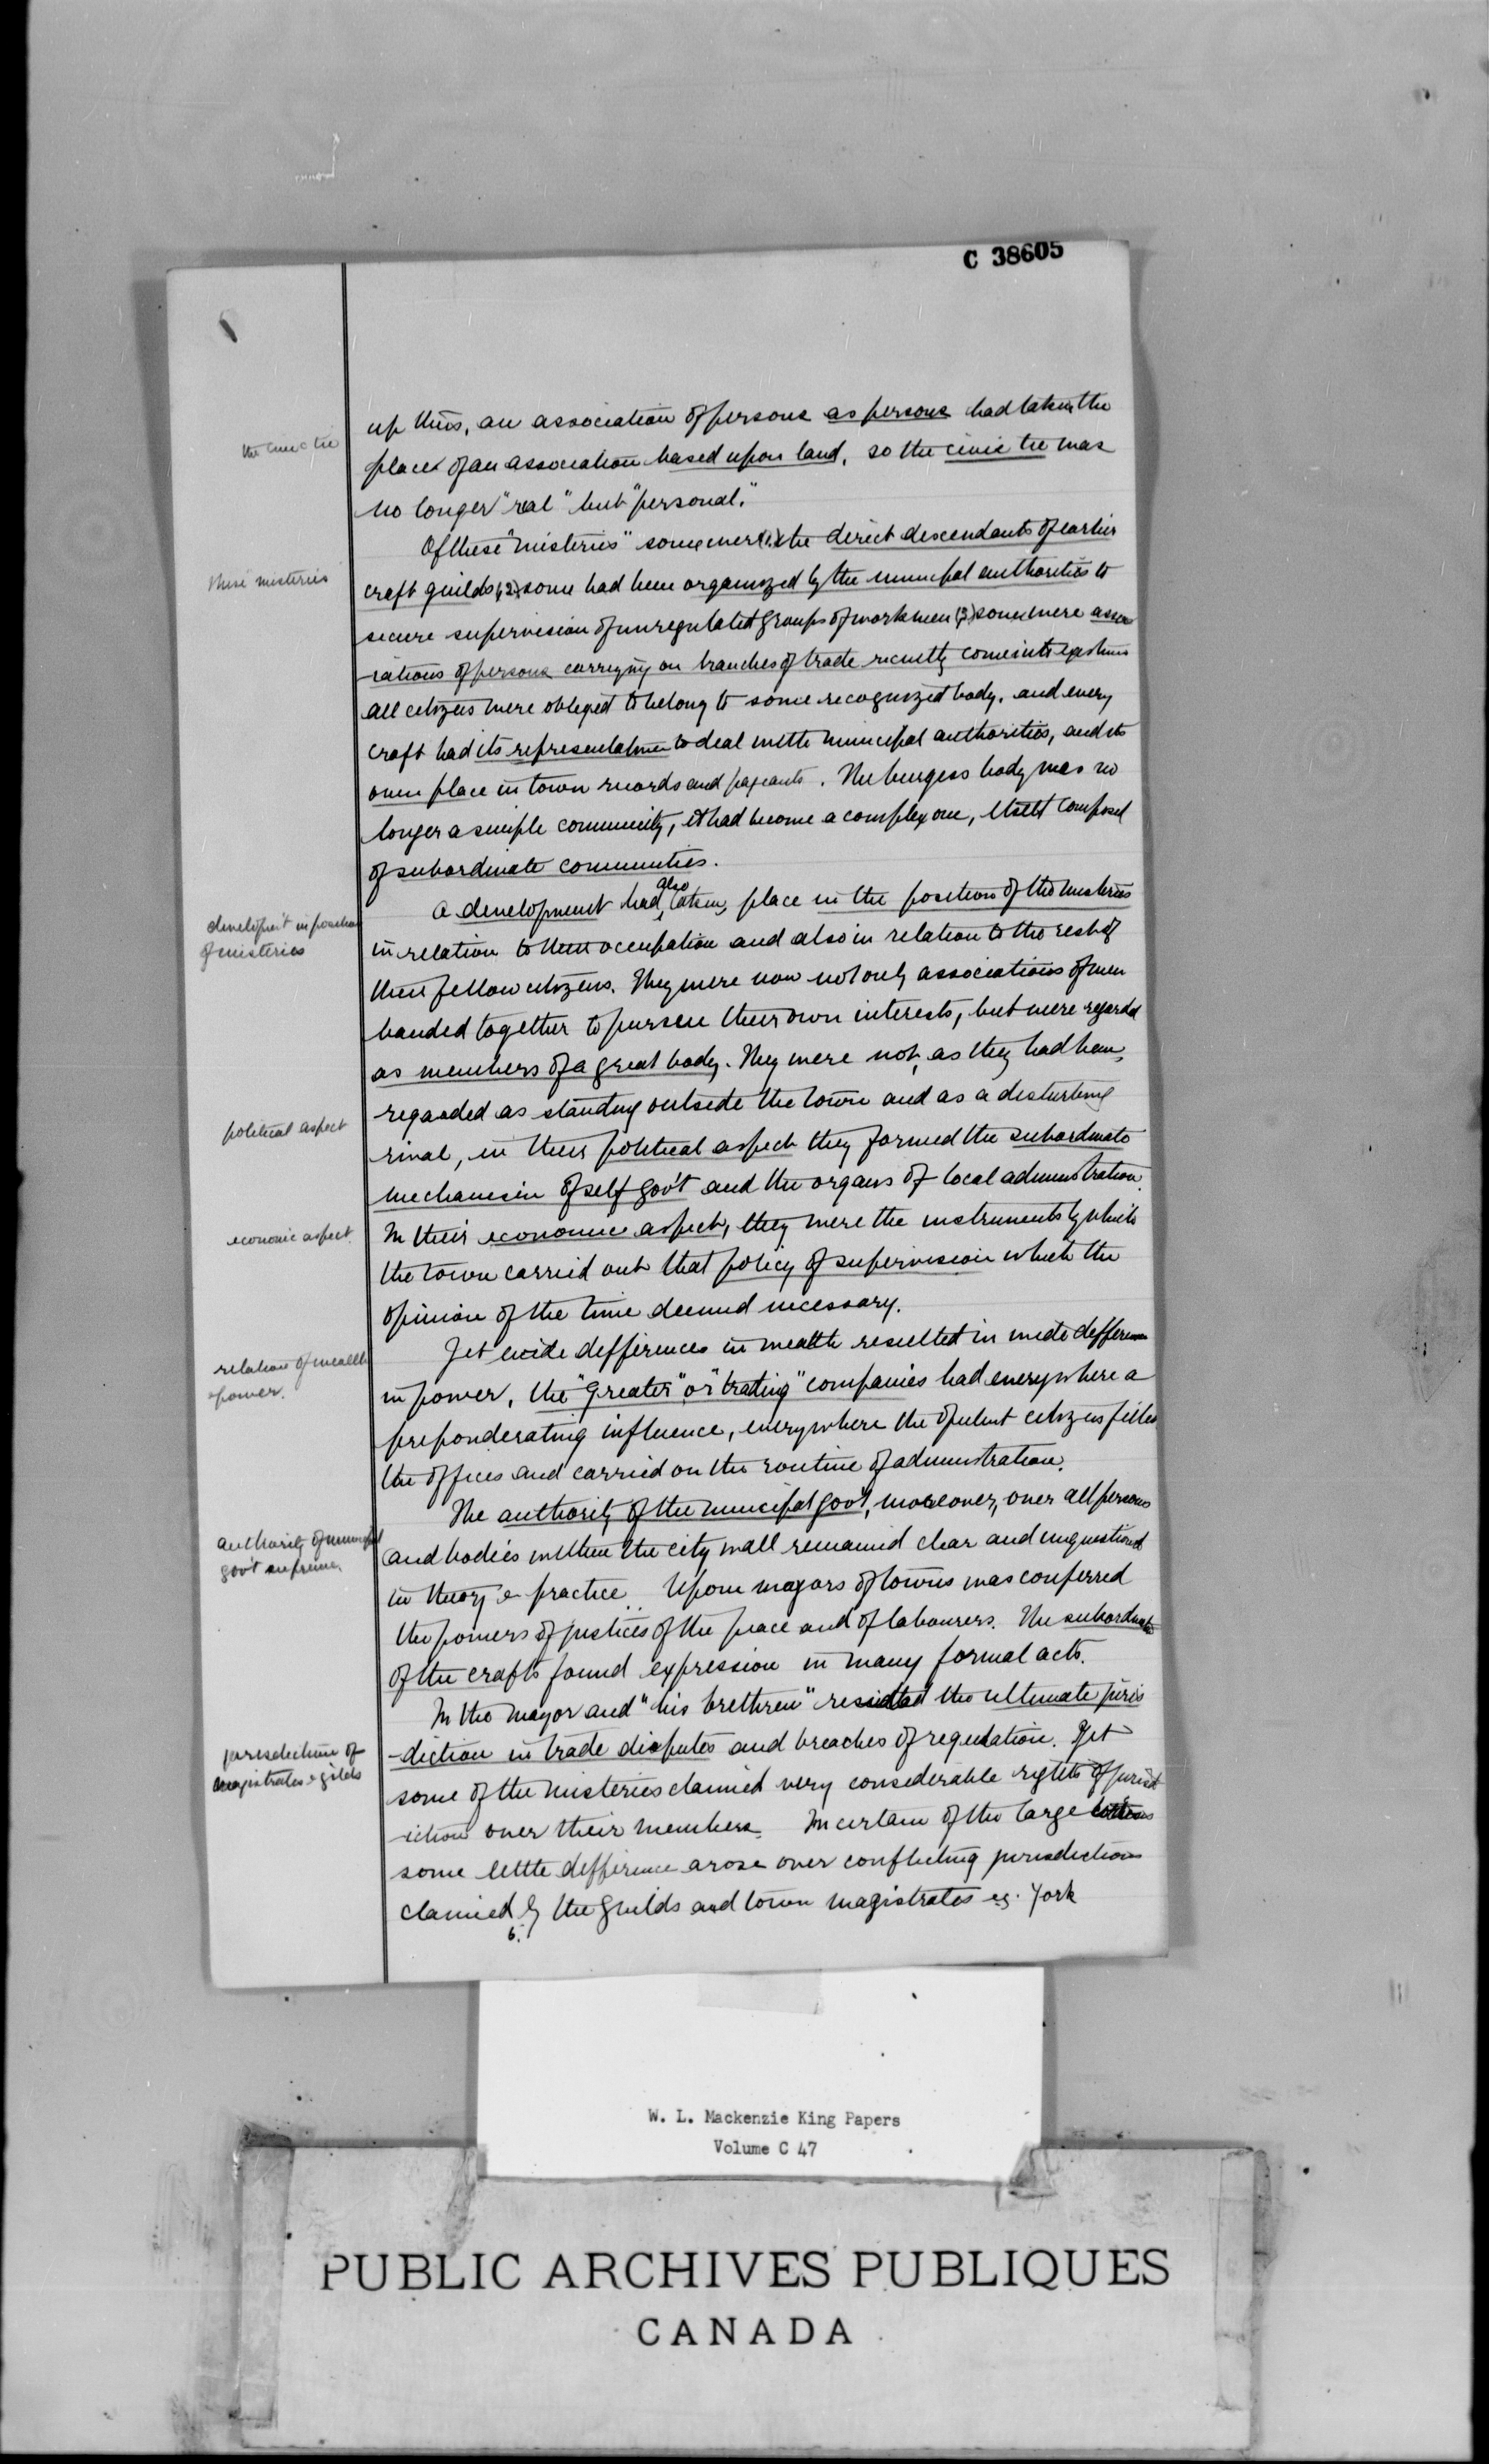 C 38605
the civic tie
up thus, an association of persons as persons had taken the
place of an association based upon land, so the civic tie was
no longer "real" but "personal."
these misteries
Of these "misteries" some were (1) the direct descendants of earlier
craft guilds, (2) some had been organized by the municipal authorities to
secure supervision of unregulated groups of workmen (3) some were asso
-ciations of persons carrying on branches of trade recently come into existence
all citizens were obliged to belong to some recognized body, and every
craft had its representatives to deal with municipal authorities, and its
own place in town records and pageants. The burgess body was no
longer a simple community, it had become a complex one, itself composed
of subordinate communities.
developm't in position
of misteries
also
A development had, taken, place in the position of the misteries
in relation to their occupation and also in relation to the rest of
their fellow citizens. They were now not only associations of men
banded together to pursue their own interests, but were regarded
as members of a great body. They were not, as they had been,
regarded as standing outside the town and as a disturbing
political aspect
rival, in their political aspect they formed the subordinate
mechanism of self gov't and the organs of local administration.
economic aspect.
In their economic aspect, they were the instruments by which
the town carried out that policy of supervision which the
opinion of the time deemed necessary.
relation of wealth
& power.
Yet wide differences in wealth resulted in wide difference
in power, the "greater" or "trading" companies had everywhere a
preponderating influence, everywhere the opulent citizens filled
the offices and carried on the routine of administration.
authority of municipal
gov't supreme.
The authority of the municipal gov't, moreover, over all persons
and bodies within the city wall remained clear and unquestioned
in theory & practice. Upon mayors of towns was conferred
the powers of justices of the peace and of labourers. The subordinate
of the crafts found expression in many formal acts.
In the mayor and "his brethren" resided the ultimate juris
jurisdiction of
magistrates & gilds
-diction in trade disputes and breaches of regulation. Yet
some of the misteries claimed very considerable rights of jurisd
-iction over their members. In certain of the large
some little difference arose over conflicting jurisdictions
claimed by the guilds and town magistrates eg. York
6.
W. L. Mackenzie King Papers
Volume C 47
PUBLIC ARCHIVES PUBLIQUES
CANADA